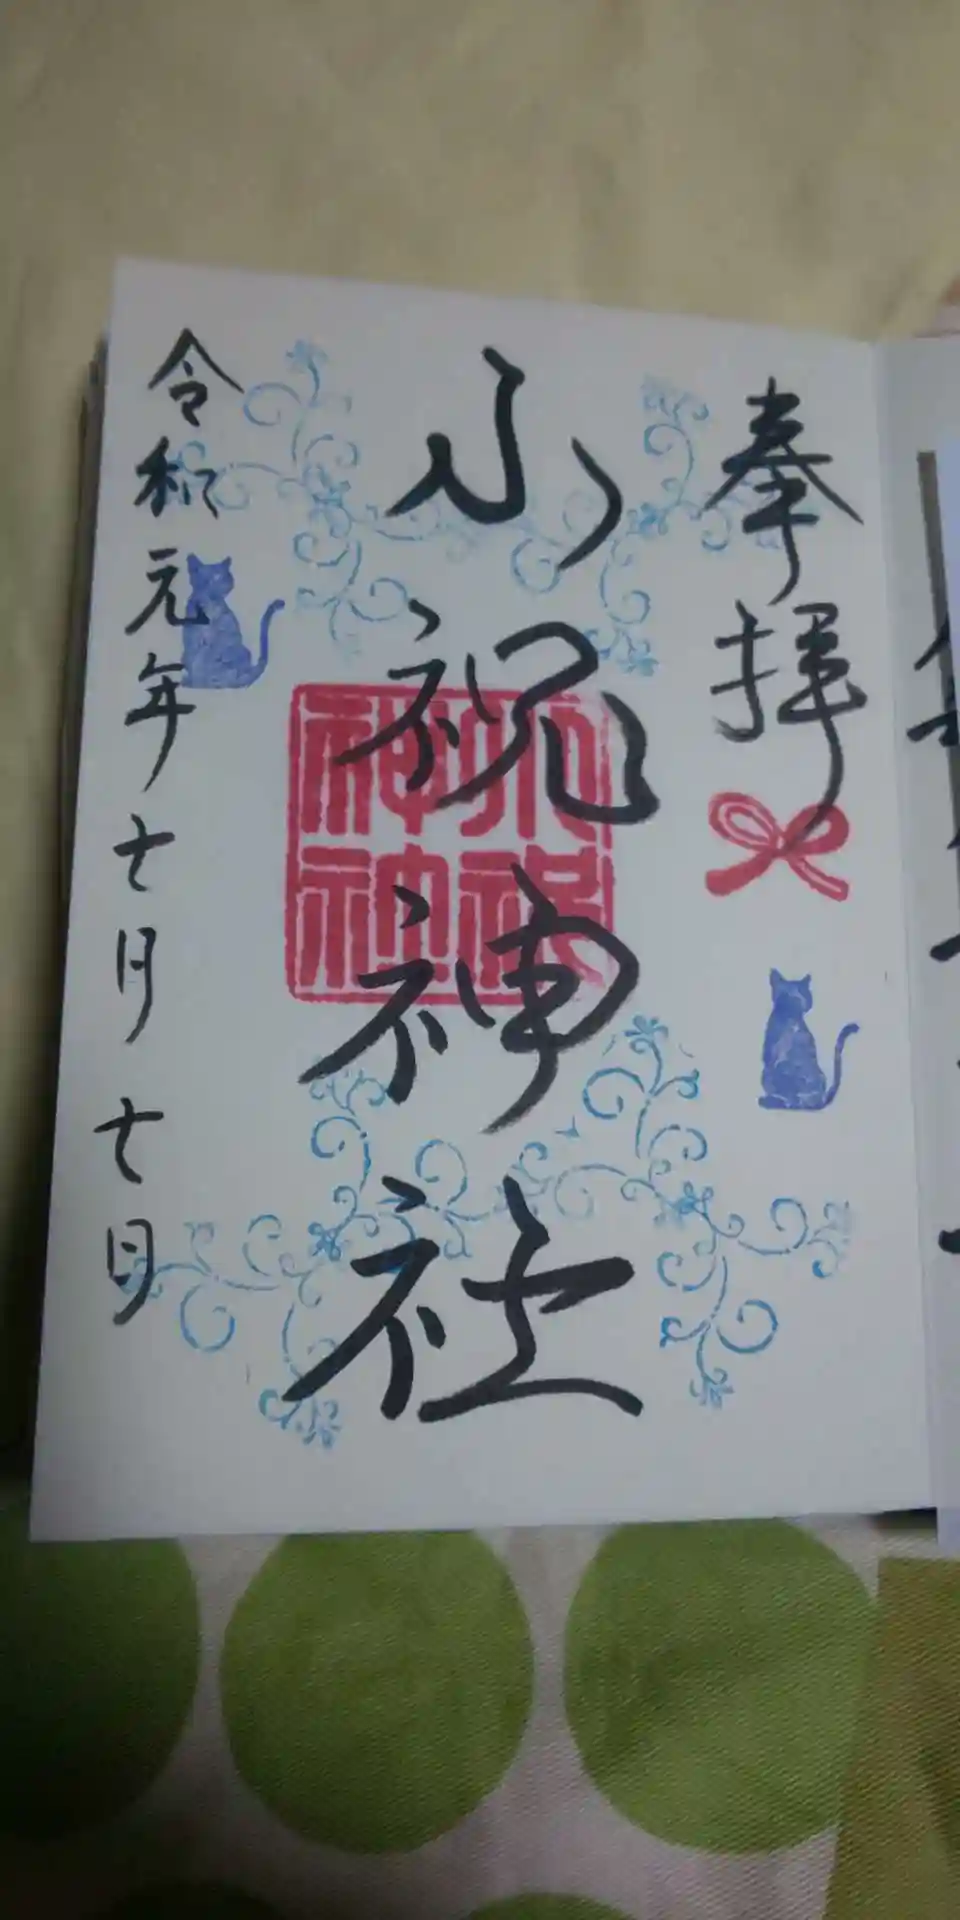 奉拝
小祝神社
小祝
神社
令和元年七月七日